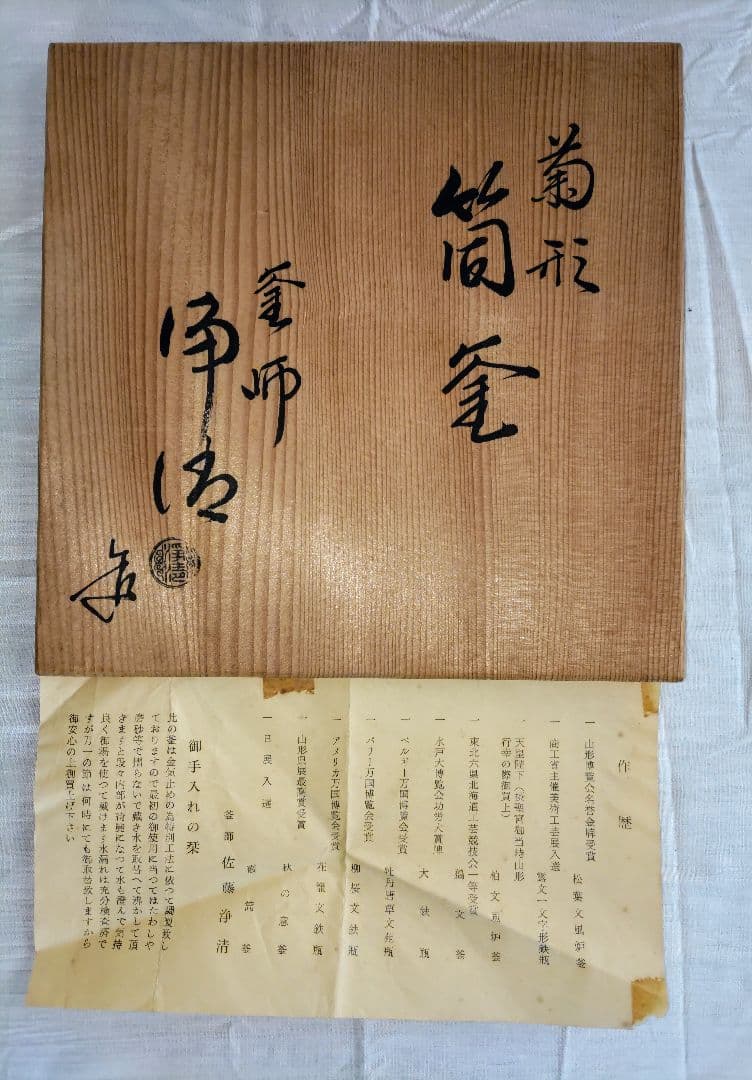 菊形
筒釜
釜師
浄清
浄清
作歴
一 山形博覧会名誉金牌受賞
松葉文風炉釜
一 商工省主催美術工芸展入選
一文字形鉄瓶
一 天皇陛下(
宮御当時山形
行幸の際御買上)
柏文風炉釜
一 東北六県北海道工芸競技会一等受賞
文釜
一 水戸大博覧会功労大賞牌
大鉄瓶
一 ベルギー万国博覧会受賞
牡丹唐草文鉄瓶
一 パリー万国博覧会受賞
柳桜文鉄瓶
一 アメリカ万国博覧会受賞
花籠文鉄瓶
一 山形県展最高賞受賞
秋の意釜
一 日展入選
筒釜
釜師 佐藤浄清
御手入れの栞
此の釜は金気止めの為特別工法に依つて謹製致し
ておりますので最初の御使用に当つてはたわしや
磨砂等で摺らないで戴き水を取替へて沸かして頂
きますと段々内部が綺麗になつて水も澄んで気持
良く御湯を使つて戴けます水漏れは充分検査済で
すが万一の節は何時にても御取替致しますから
御安心の上御買上げ下さい